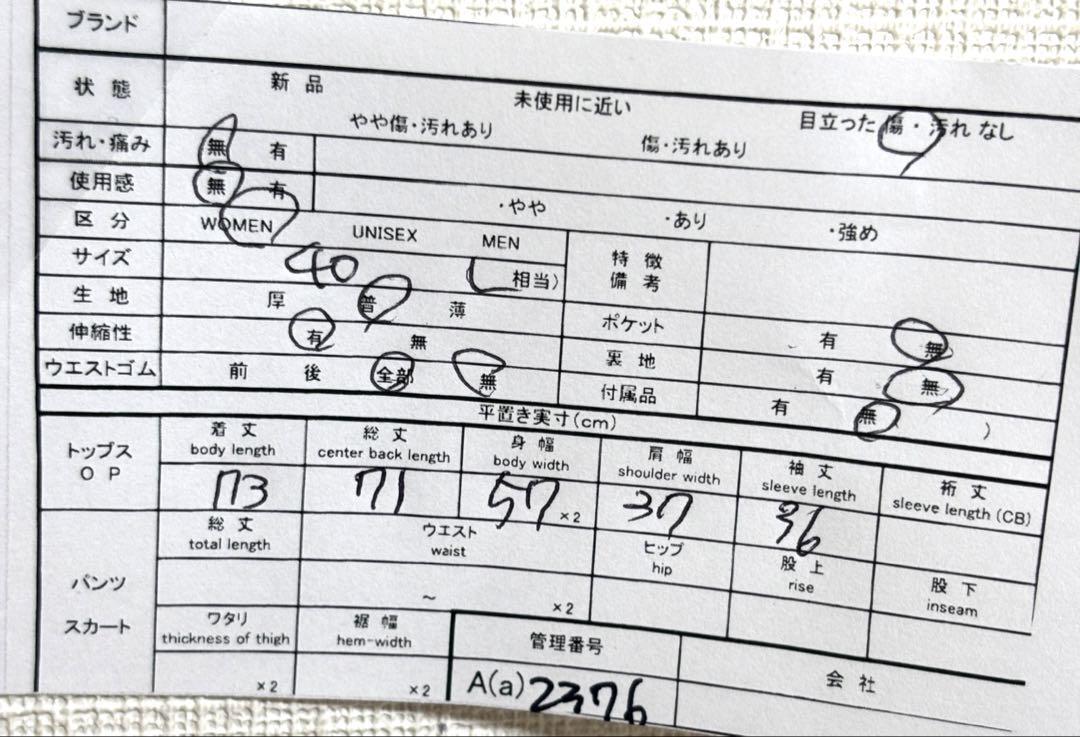 ブランド
状態 新品 未使用に近い 目立った 傷・汚れ なし
やや傷・汚れあり 傷・汚れあり
汚れ・痛み 無 有
使用感 無 有 ・やや ・あり ・強め
区分 WOMEN UNISEX MEN
サイズ 40 (相当)
特徴
備考
生地 厚 普 薄
ポケット 有 無
伸縮性 有 無
裏地 有 無
ウエストゴム 前 後 全部 無
付属品 有 無( )
平置き実寸(cm)
トップス
OP
着丈 総丈 身幅 肩幅 袖丈 裄丈
body length center back length body width shoulder width sleeve length sleeve length (CB)
73 71 57 ×2 37 36
パンツ
スカート
総丈 ウエスト ヒップ 股上 股下
total length waist hip rise inseam
~ ×2
ワタリ 裾幅
thickness of thigh hem-width
×2 ×2
管理番号 会社
A(a) 2376